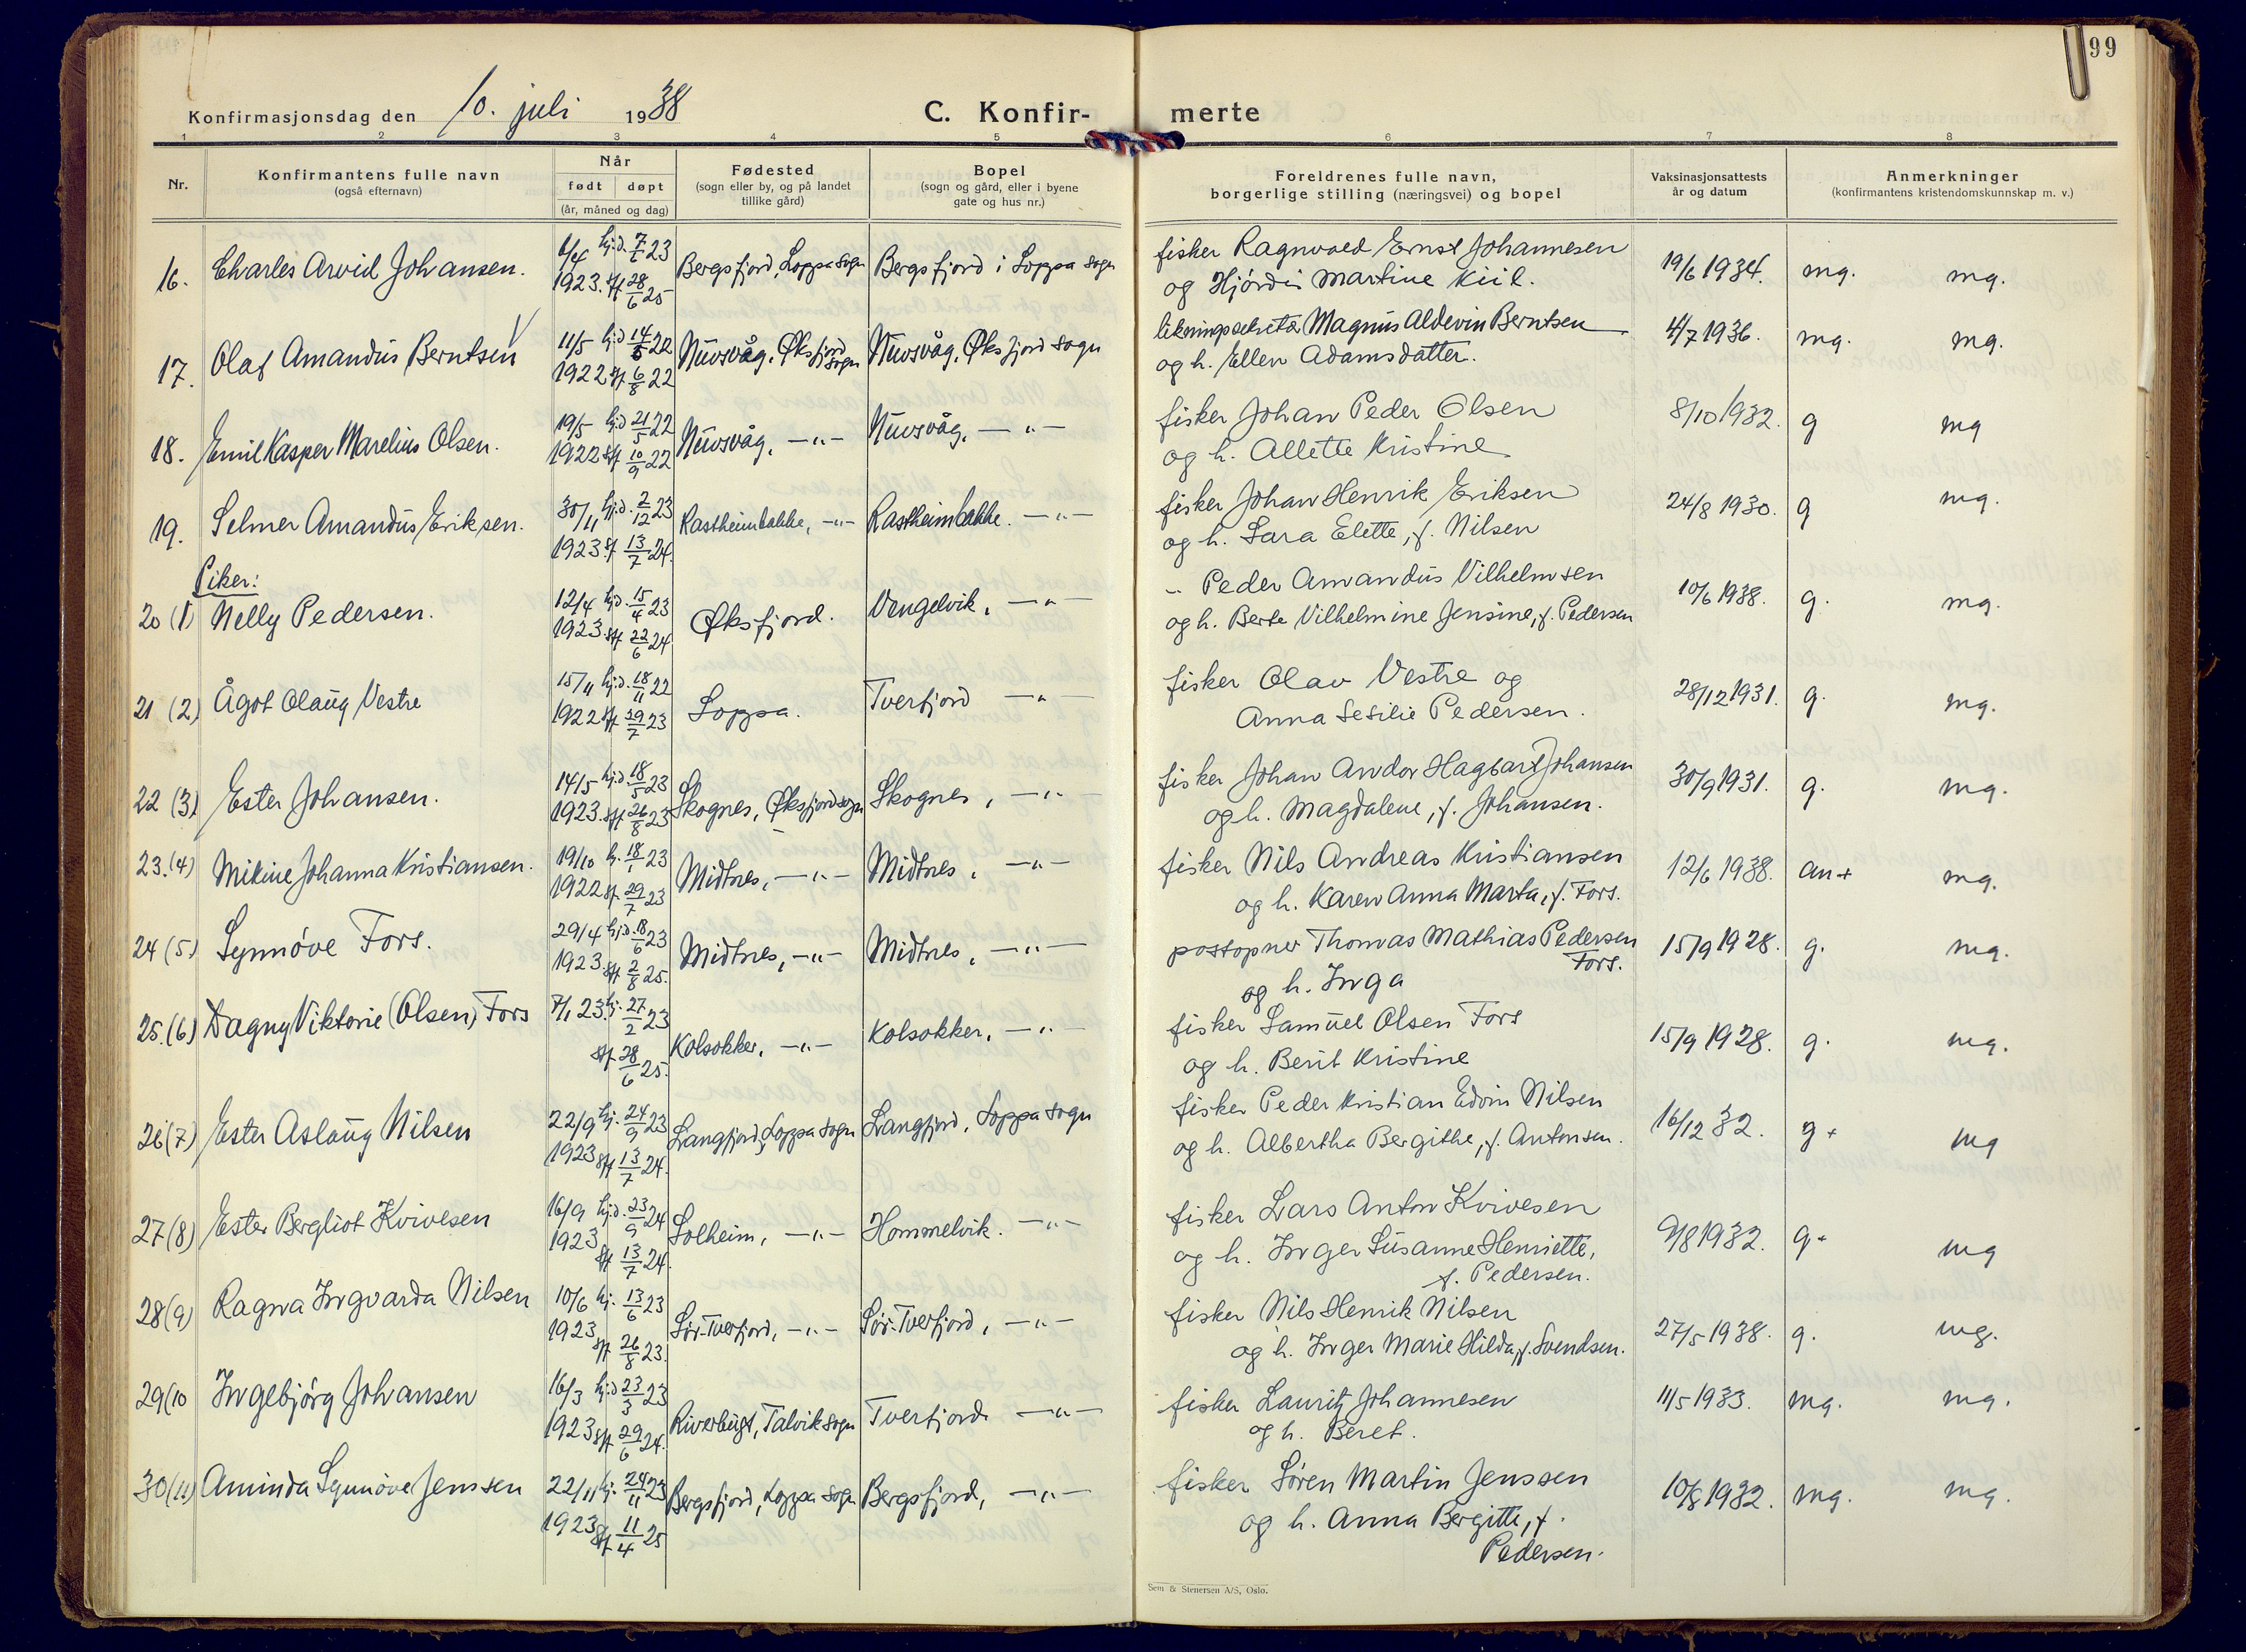 99
Konfirmasjonsdag den 10. juli 1938
C. Konfir- merte
1 2 3 4 5 6 7 8
Nr.
Konfirmantens fulle navn
(også efternavn)
Når
født døpt
(år, måned og dag)
Fødested
(sogn eller by, og på landet
tillike gård)
Bopel
(sogn og gård, eller i byene
gate og hus nr.)
Foreldrenes fulle navn,
borgerlige stilling (næringsvei) og bopel
Vaksinasjonsattests
år og datum
Anmerkninger
(konfirmantens kristendomskunnskap m. v.)
16. Charles Arvid Johansen. 6/4 hj.d. 7/1 23 Bergsfjord, Loppa sogn Bergsfjord i Loppa sogn fisker Ragnvald Ernst Johannesen 19/6 1934. mg. mg.
1923. stf 28/6 25 og Hjördis Martine Kiil.
17. Olaf Amandus Berntsen 11/5 hj.d 14/5 22 Nuvsvåg, Øksfjord sogn Nuvsvåg, Øksfjord sogn likningssekretær Magnus Aldevin Berntsen 4/7 1936. mg. mg.
1922 stf 6/8 22 og h. Ellen Adamsdatter.
18. Emil Kasper Marelius Olsen. 19/5 hj.d 21/5 22 Nuvsvåg, -"- Nuvsvåg, -"- fisker Johan Peder Olsen 8/10 1932. g mg
1922 stf 10/9 22 og h. Allette Kristine
19. Selmer Amandus Eriksen. 30/11 hj.d. 2/12 23 Rastheimbakke, -"- Rastheimbakke. -"- fisker Johan Henrik Eriksen 24/8 1930. g mg.
1923 stf 13/7 24. og h. Sara Elette, f. Nilsen
Piker:
20 (1) Nelly Pedersen. 12/4 hj.d. 15/4 23 Øksfjord. Vengelvik, -"- " Peder Amandus Vilhelmsen 10/6 1938. g. mg.
1923. stf 22/6 24 og h. Berte Vilhelmine Jensine, f. Pedersen
21 (2) Ågot Olaug Vestre 15/11 hj.d. 18/11 22 Loppa. Tverfjord -"- fisker Olav Vestre og 28/12 1931. g. mg.
1922 stf 29/7 23 Anna Sesilie Pedersen.
22 (3) Ester Johansen. 14/5 hj.d. 18/5 23 Skognes, Øksfjord sogn Skognes, -"- fisker Johan Andor Hagbart Johansen 30/9 1931. g. mg.
1923. stf 26/8 23 og h. Magdalene, f. Johansen.
23. (4) Mikine Johanna Kristiansen. 19/10 hj. 18/1 23 Midtnes, -"- Midtnes, -"- fisker Nils Andreas Kristiansen 12/6 1938. an+ mg.
1922 stf. 29/7 23 og h. Karen Anna Marta, f. Fors.
24 (5) Synnöve Fors. 29/4 hj.d. 18/6 23 Midtnes, -"- Midtnes, -"- postopner Thomas Mathias Pedersen 15/9 1928. g. mg.
1923. stf 2/8 25. Fors.
og h. Inga
25. (6) Dagny Viktorie (Olsen) Fors 7/1 23. hj. 27/2 23 Kolsokker, -"- Kolsokker, -"- fisker Samuel Olsen Fors 15/9 1928. g. mg.
stf 28/6 25. og h. Berit Kristine
26 (7) Ester Aslaug Nilsen 22/9 hj. 24/9 23 Langfjord, Loppa sogn Langfjord, Loppa sogn fisker Peder Kristian Edvin Nilsen 16/12 32. g+ mg
1923 stf 13/7 24. og h. Albertha Bergithe, f. Antonsen.
27 (8) Ester Bergliot Kvivesen 16/9 hj.d. 23/9 24 Solheim, -"- Hommelvik. -"- fisker Lars Anton Kvivesen 9/8 1932. g+ mg
1923 stf 13/7 24. og h. Inger Susanne Henriette,
f. Pedersen.
28 (9) Ragna Ingvarda Nilsen 10/6 hj. 13/6 23 Sör-Tverfjord, -"- Sör-Tverfjord, -"- fisker Nils Henrik Nilsen 27/5 1938. g. mg.
1923 stf 26/8 23. og h. Inger Marie Hilda, f. Svendsen.
29 (10 Ingebjörg Johansen 16/3 hj.d 23/3 23 Riverbugt, Talvik sogn Tverfjord -"- fisker Lauritz Johannesen 11/5 1933. mg. mg.
1923 stf 29/6 24. og h. Beret.
30 (11) Aminda Synnöve Jenssen 22/11 hj. 24/11 23 Bergsfjord, Loppa sogn Bergsfjord, -"- fisker Sören Martin Jenssen 10/8 1932. mg. mg.
1923 stf 11/4 25 og h. Anna Bergitte, f.
Pedersen.
Sem & Stenersen A/S, Oslo.